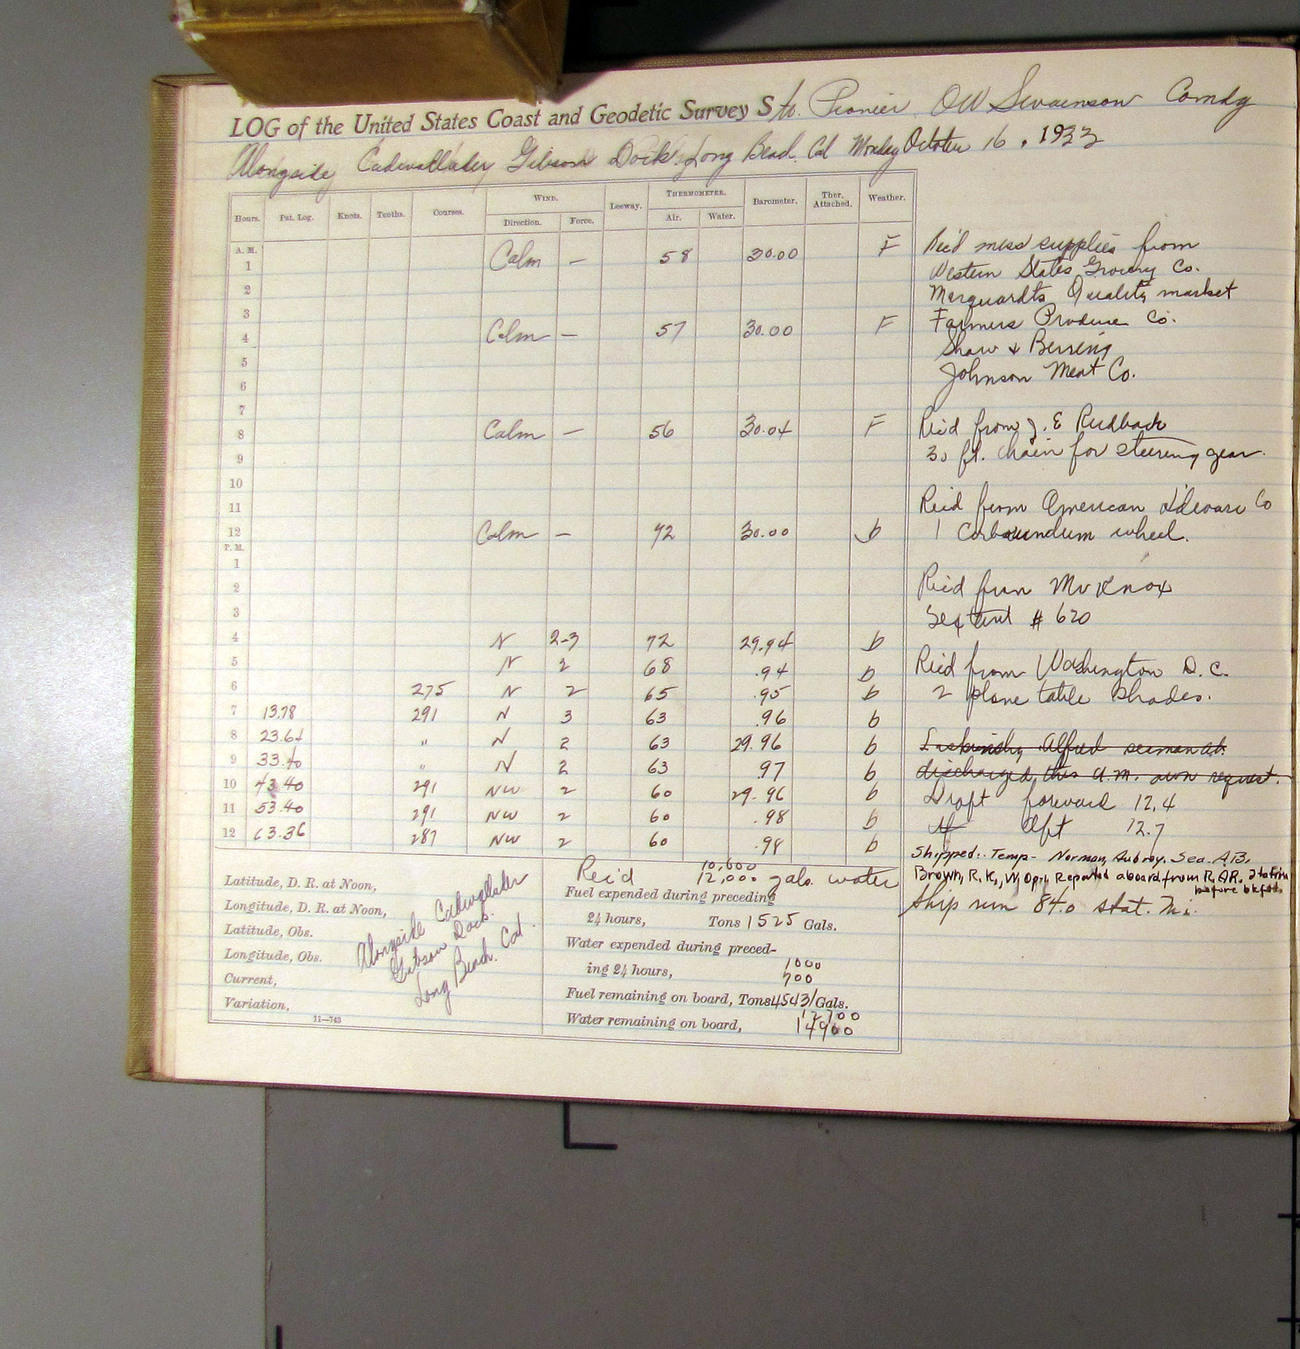 LOG of the United States Coast and Geodetic Survey Str. Pioneer, O W Swainson Comdg
Alongside Cadwallader Gibson Dock, Long Beach, Cal Monday October 16, 1933
Hours. Pat. Log. Knots. Tenths. Courses. WIND. Leeway. THERMOMETER. Barometer. Ther. Attached. Weather.
Direction. Force. Air. Water.
A. M.
1 Calm — 58 30.00 F
2
3
4 Calm — 57 30.00 F
5
6
7
8 Calm — 56 30.04 F
9
10
11
12 Calm — 72 30.00 b
P. M.
1
2
3
4 N 2-3 72 29.94 b
5 N 2 68 .94 b
6 275 N 2 65 .95 b
7 13.78 291 N 3 63 .96 b
8 23.64 " N 2 63 29.96 b
9 33.40 " N 2 63 .97 b
10 43.40 291 NW 2 60 29.96 b
11 53.40 291 NW 2 60 .98 b
12 63.36 287 NW 2 60 .98 b
Rec'd mess supplies from
Western States Grocery Co.
Marquardts Quality market
Farmers Produce Co.
Shaw & Berring
Johnson Meat Co.
Rec'd from J. E
30 ft. chain for steering gear.
Rec'd from American H'dware Co
1 Carborundum wheel.
Rec'd from Mr Knox
Sextant # 620
Rec'd from Washington D. C.
2 plane table shades.
Alfred seaman at.
discharged, this a.m. own request.
Draft forward 12.4
aft 12.7
Shipped:- Temp- Norman, Aubrey, Sea. A.B.
Brown, R. K., W. Opr., Reported aboard from R.A.R.
before bkfst.
Ship run 84.0 stat. mi.
Latitude, D. R. at Noon,
Longitude, D. R. at Noon,
Latitude, Obs.
Longitude, Obs.
Current,
Variation,
11—743
Alongside Cadwallader
Gibson Dock.
Long Beach. Cal.
10,600
Rec'd 12,000 gals. water
Fuel expended during preceding
24 hours, Tons 1525 Gals.
Water expended during preced-
1000
ing 24 hours, 700
Fuel remaining on board, Tons 45431 Gals.
17700
Water remaining on board, 14900